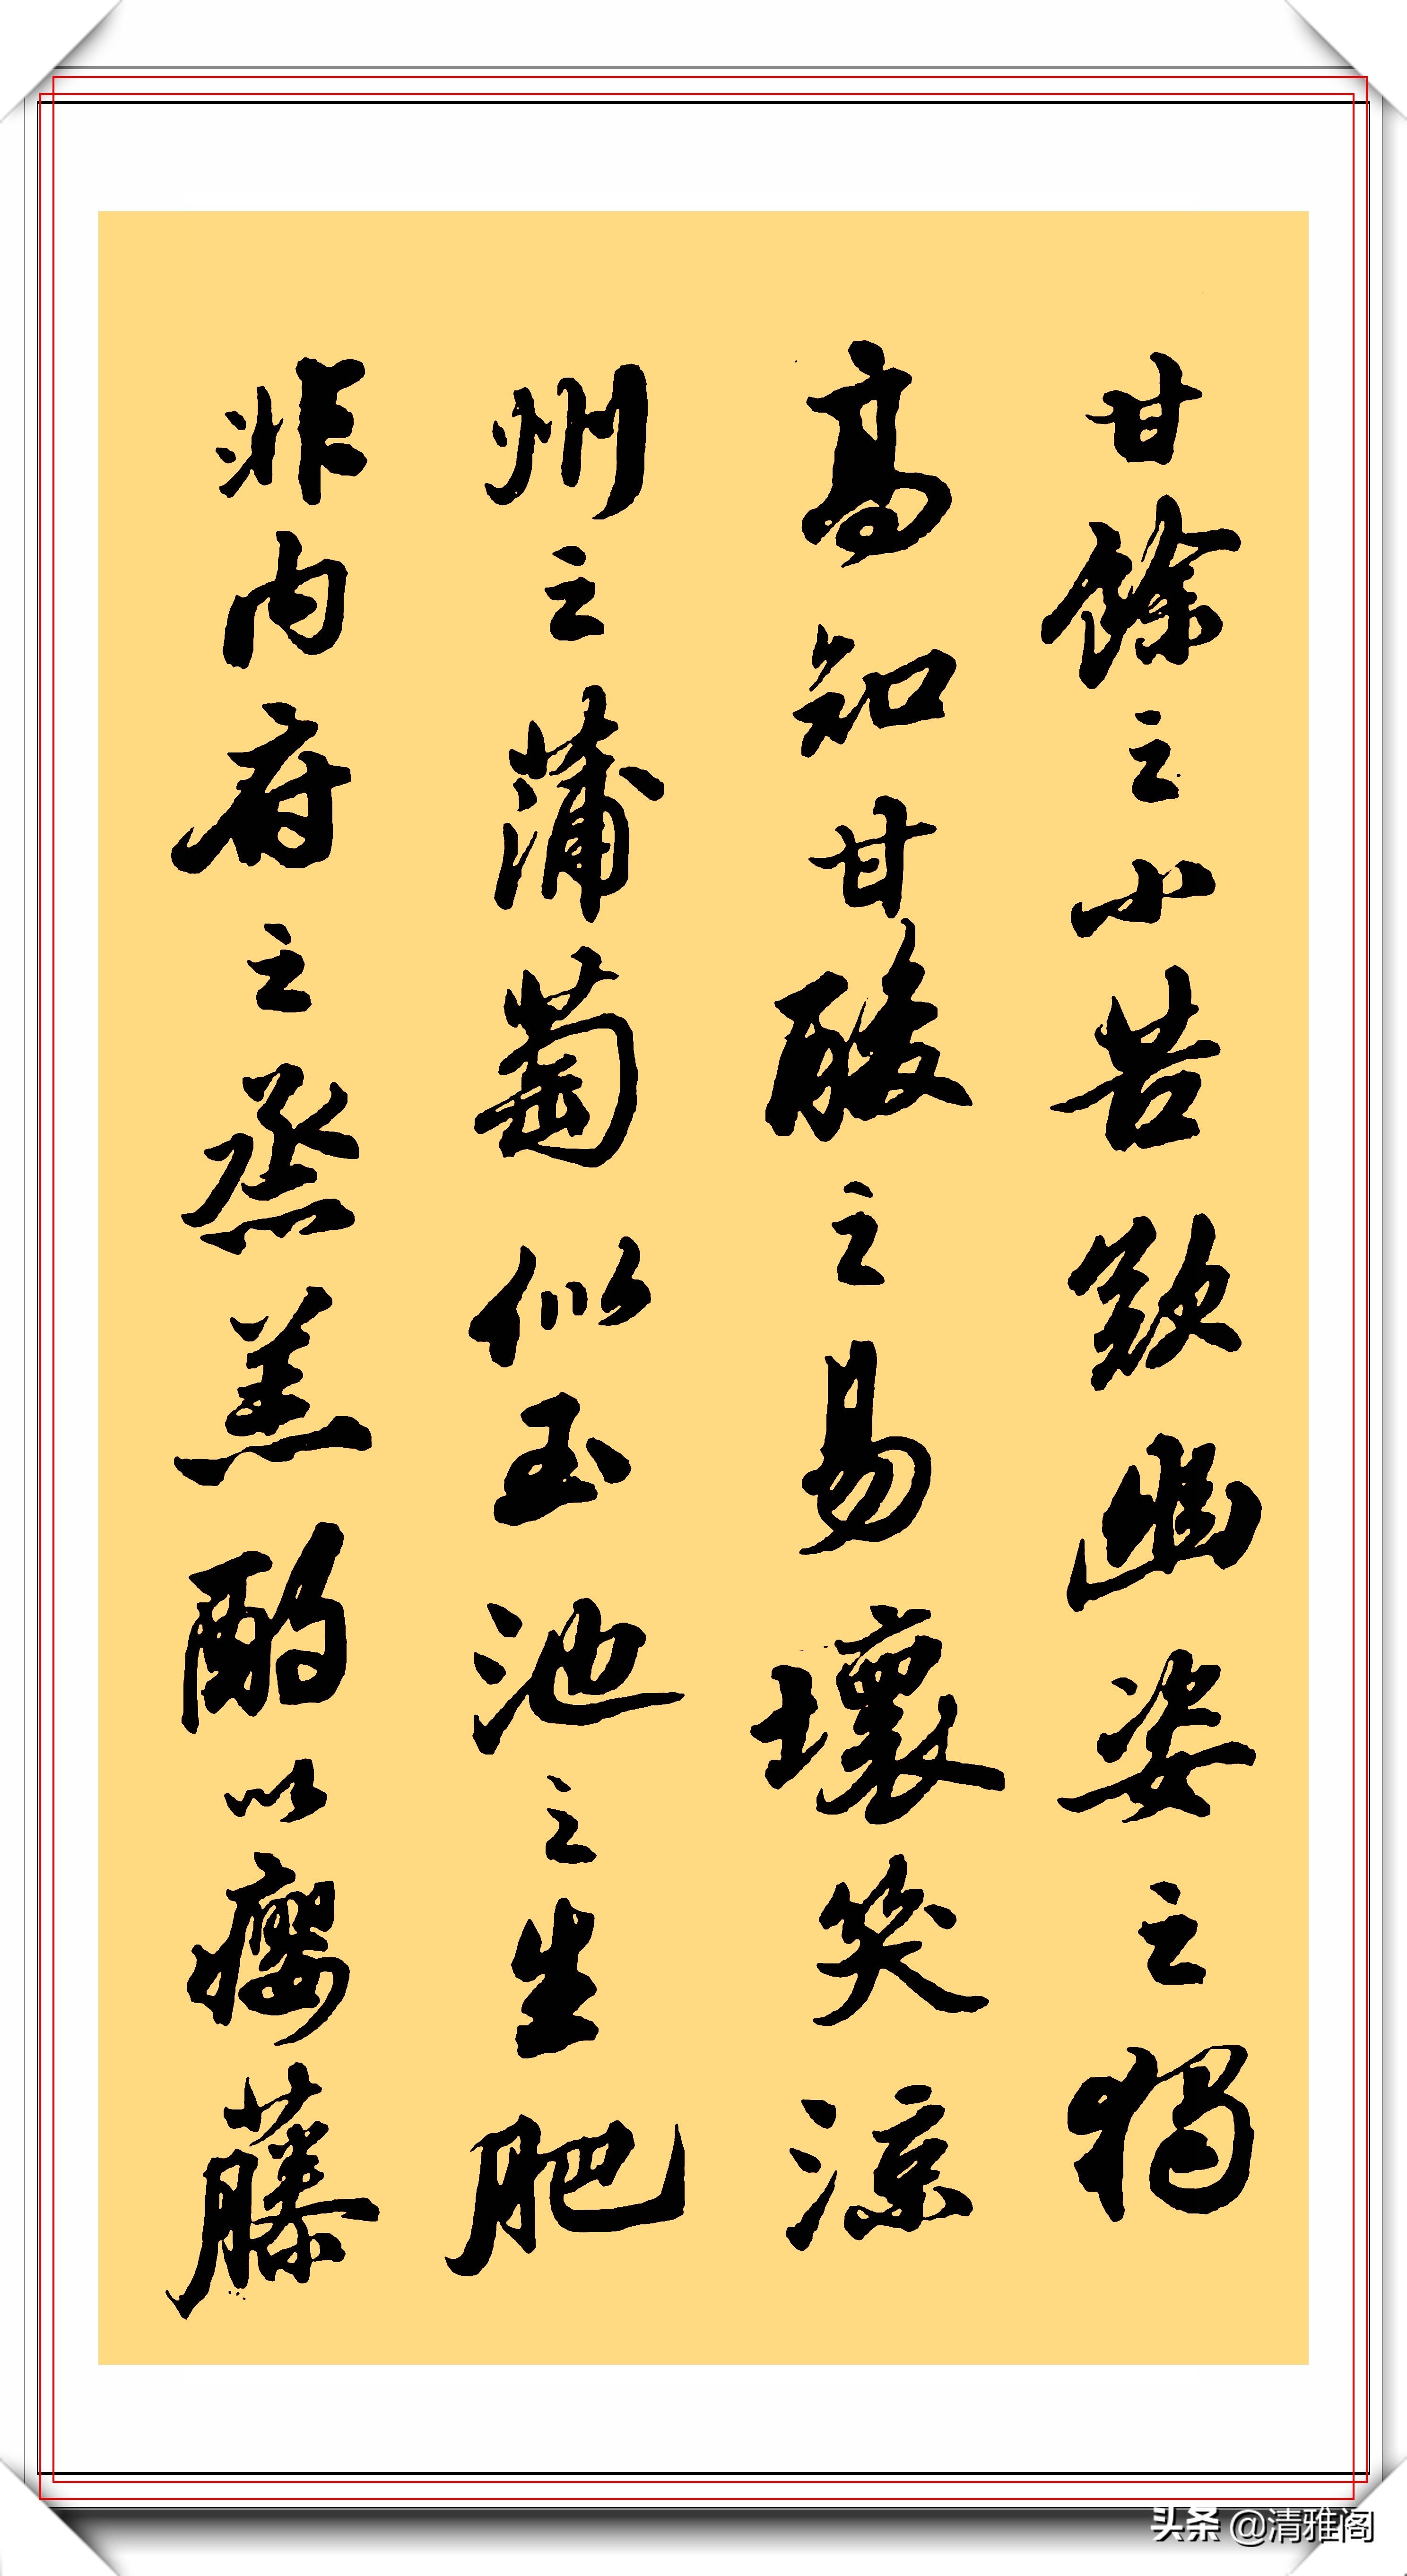 甘餘之小苦歎幽姿之獨
高知甘酸之易壞笑涼
州之蒲萄似玉池之生肥
非内府之烝羔酌以癭藤
头条 @清雅阁